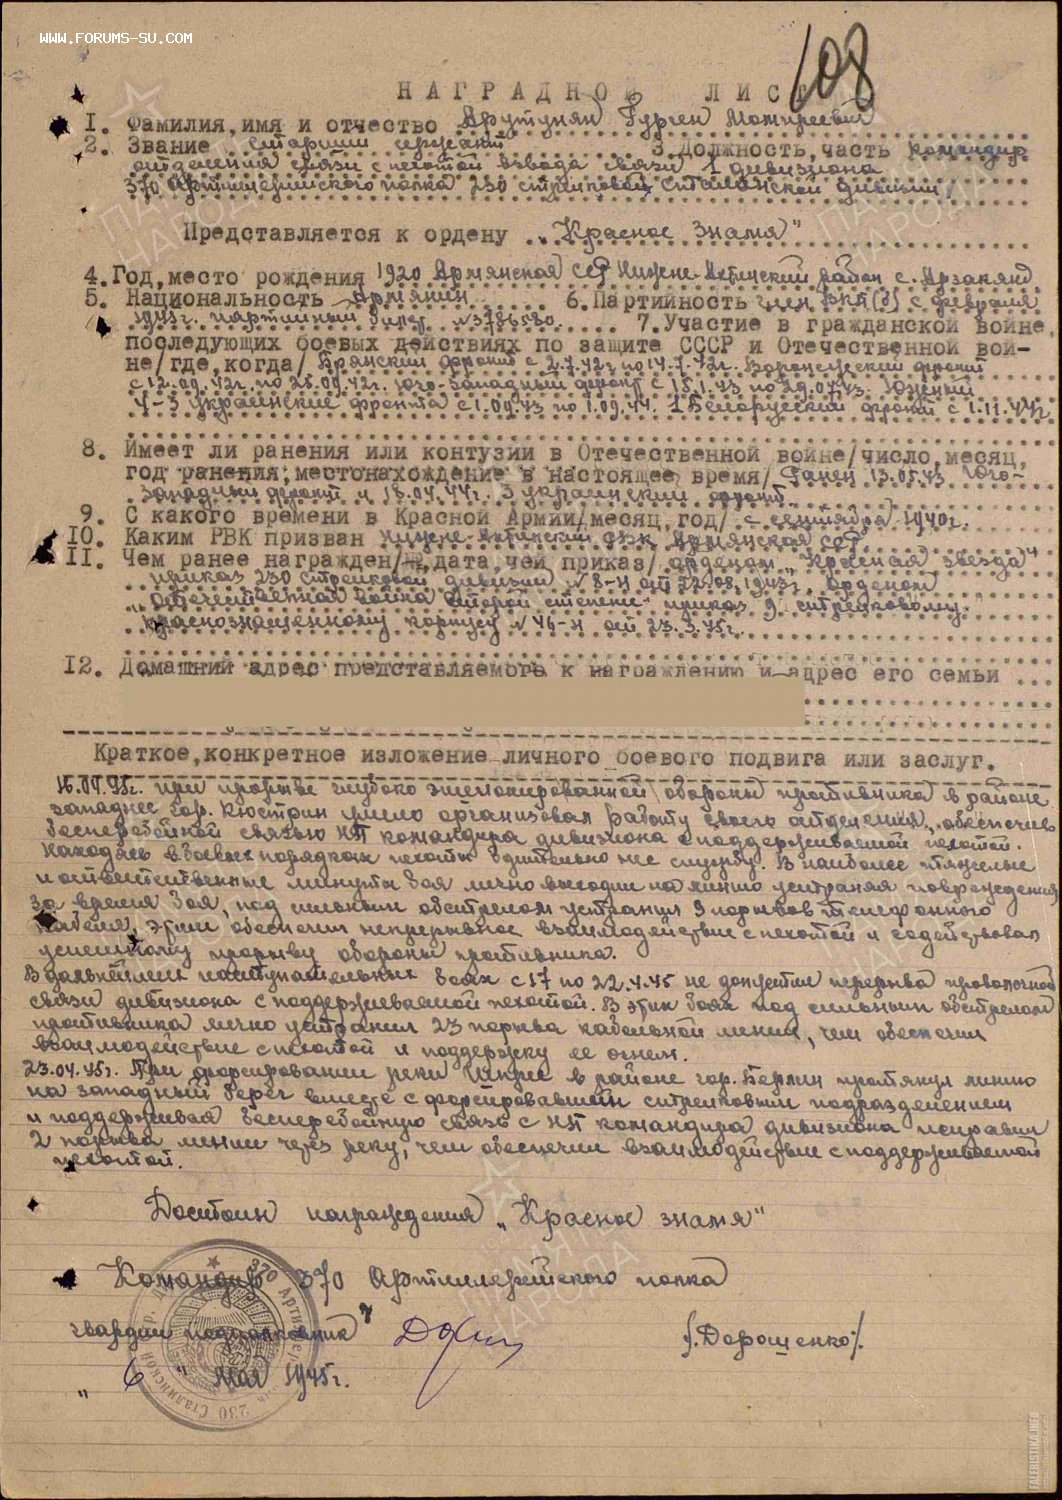 WWW.FORUMS-SU.COM
608
НАГРАДНОЙ ЛИСТ
1. Фамилия, имя и отчество Арутунян Гурген
2. Звание старший сержант 3. Должность, часть командир
отделения связи с пехотой взвода связи 1 дивизиона
370 Артиллерийского полка 230 стрелковой Сталинской дивизии
Представляется к ордену „Красное Знамя"
4. Год, место рождения 1920 Армянская ССР Нижне-Ахтинский район с. Арзакянд
5. Национальность Армянин 6. Партийность член ВКП(б) с февраля
1943г. партийный билет 7. Участие в гражданской войне,
последующих боевых действиях по защите СССР и Отечественной вой-
не/где, когда/ Брянский фронт с 2.7.42г. по 14.7.42г. Воронежский фронт
с 12.09.42г. по 25.09.42г. Юго-Западный фронт с 15.1.43 по 29.04.43. Южный
4-3 Украинские фронта с 1.09.43 по 1.09.44. 1 Белорусский фронт с 1.11.44г.
8. Имеет ли ранения или контузии в Отечественной войне/число, месяц,
год ранения, местонахождение в настоящее время/ Ранен 13.05.43 Юго-
Западный фронт и 13.04.44г. 3 украинский фронт
9. С какого времени в Красной Армии/месяц, год/ с сентября 1940г.
10. Каким РВК призван Нижне-Ахтинский РВК Армянская ССР
11. Чем ранее награжден/ дата, чей приказ/ орденом „Красная звезда"
приказ 230 стрелковой дивизии №8-Н от 22.08.1943г. Орденом
„Отечественная война второй степени" приказ 9 стрелковому
краснознаменному корпусу №46-н от 23.3.45г.
12. Домашний адрес представляемого к награждению и адрес его семьи
Краткое, конкретное изложение личного боевого подвига или заслуг.
16.04.45г. при прорыве глубоко эшелонированной обороны противника в районе
западнее гор. Кюстрин умело организовал работу своего отделения, обеспечив
бесперебойной связью НП командира дивизиона с поддерживаемой пехотой.
Находясь в боевых порядках пехоты бдительно нес службу. В наиболее тяжелые
и ответственные минуты боя лично выходил на линию устраняя повреждения
За время боя, под сильным обстрелом устранил 9 порывов телефонного
кабеля, этим обеспечил непрерывное взаимодействие с пехотой и содействовал
успешному прорыву обороны противника.
В дальнейших наступательных боях с 17 по 22.4.45 не допустил перерыва проволочной
связи дивизиона с поддерживаемой пехотой. В этих боях под сильным обстрелом
противника лично устранил 23 порыва кабельной линии, чем обеспечил
взаимодействие с пехотой и поддержку ее огнем.
23.04.45г. При форсировании реки Шпрее в районе гор. Берлин протянул линию
на западный берег вместе с форсировавшим стрелковым подразделением
и поддерживая бесперебойную связь с НП командира дивизиона исправил
2 порыва линии через реку, чем обеспечил взаимодействие с поддерживаемой
пехотой.
Достоин награждения „Красное знамя"
Командир 370 Артиллерийского полка
гвардии подполковник
/.Дорошенко/.
„6" мая 1945г.
370 Артиллер
230 Сталинской
ПАМЯТЬ НАРОДА
FALERISTIKA.INFO